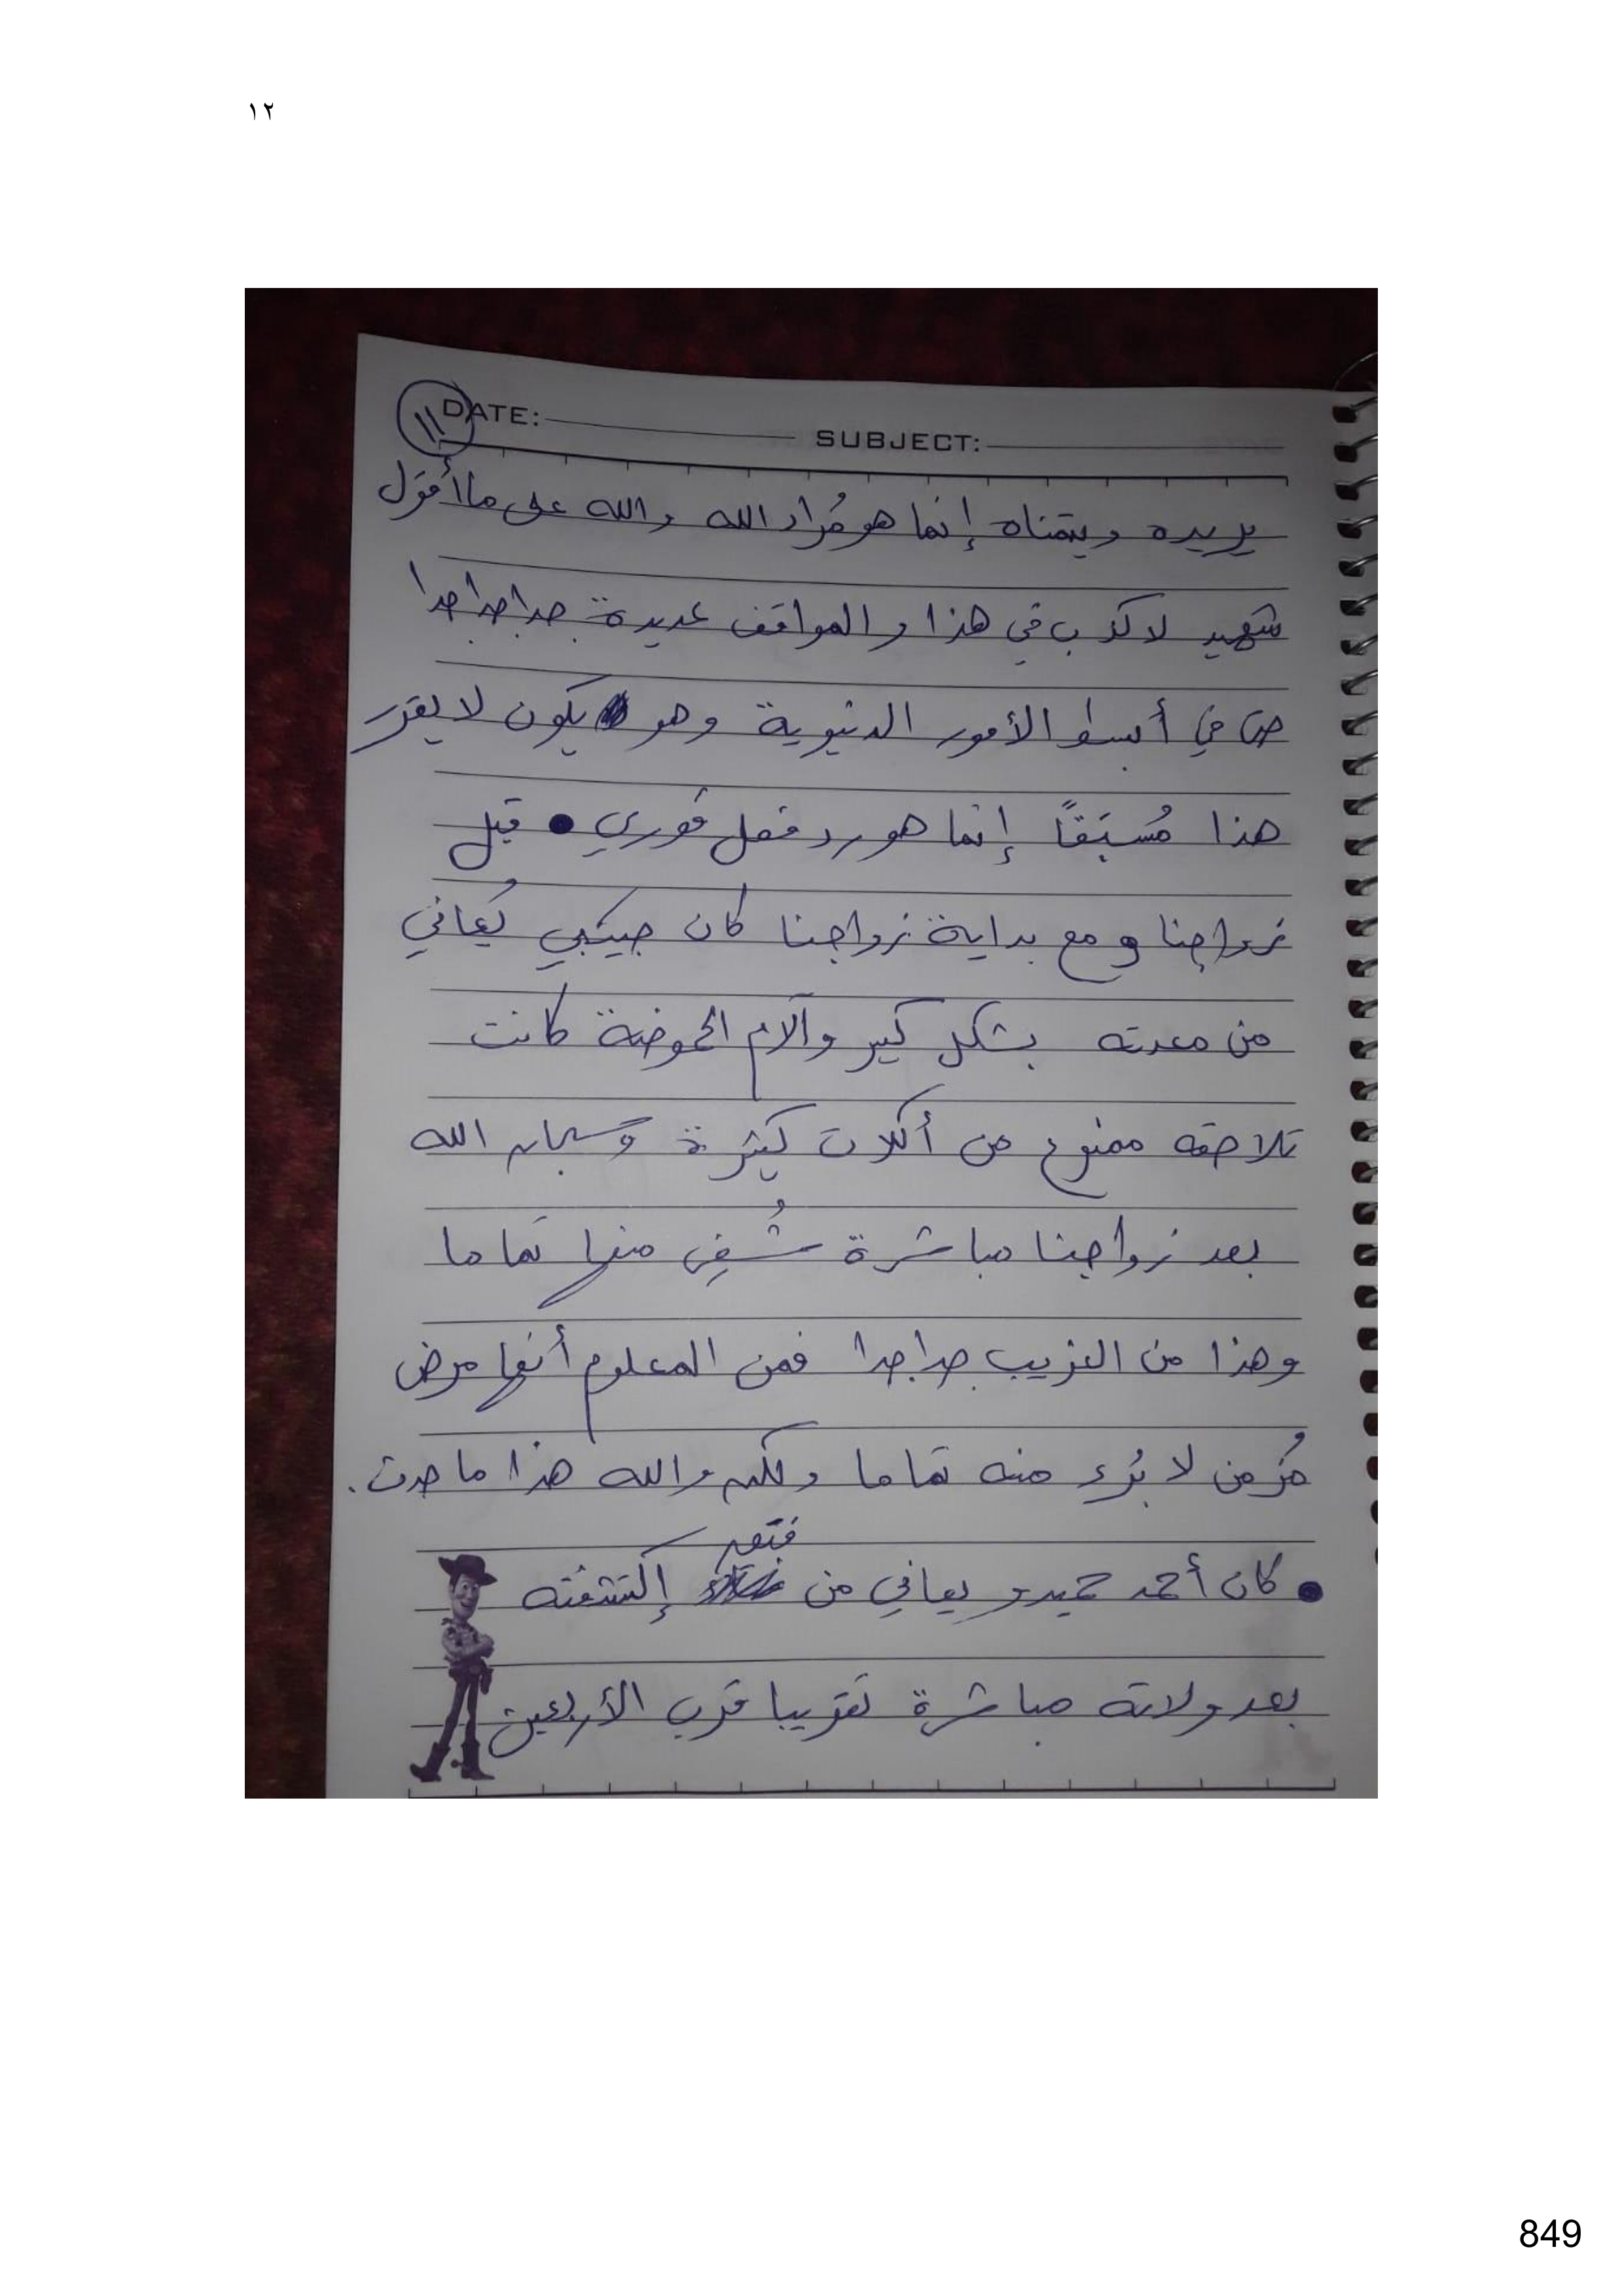 ١٢
١١
DATE:
SUBJECT:
يريده ويتمناه إنما هو مُراد الله والله على ما أقول
شهيد لا كذب في هذا والمواقف عديدة جدا جدا جدا
حتى في أبسط الأمور الدنيوية وهو يكون لا يقرر
هذا مُسبَقاً إنما هو رد فعل فوري • قبل
زواجنا ومع بداية زواجنا كان حبيبي يُعاني
من معدته بشكل كبير وآلام الحموضة كانت
تلاحقه ممنوع من أكلات كثيرة وسبحان الله
بعد زواجنا مباشرة شُفِي منها تماما
وهذا من الغريب جدا جدا فمن المعلوم أنها مرض
مُزمن لا بُرء منه تماما ولكن والله هذا ما حدث.
• كان أحمد حميدو يعاني من فتق إكتشفته
بعد ولادته مباشرة تقريبا قرب الأربعين
849